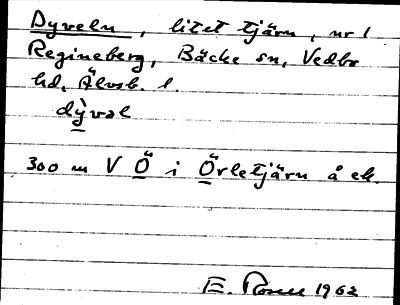 Dyveln, litet tjärn, nr 1
Regineberg, Bäcke sn, Vedbo
hd, Älvsb. l.
dỳvəl
300 m V Ö i Örletjärn å ek.
E. 1962